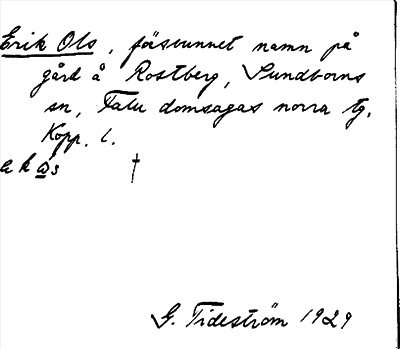 Erik Ols, försvunnet namn på
gård å Rostberg, Sundborns
sn, Falu domsagas norra tg,
Kopp. l.
a k os †
G. Tideström 1929